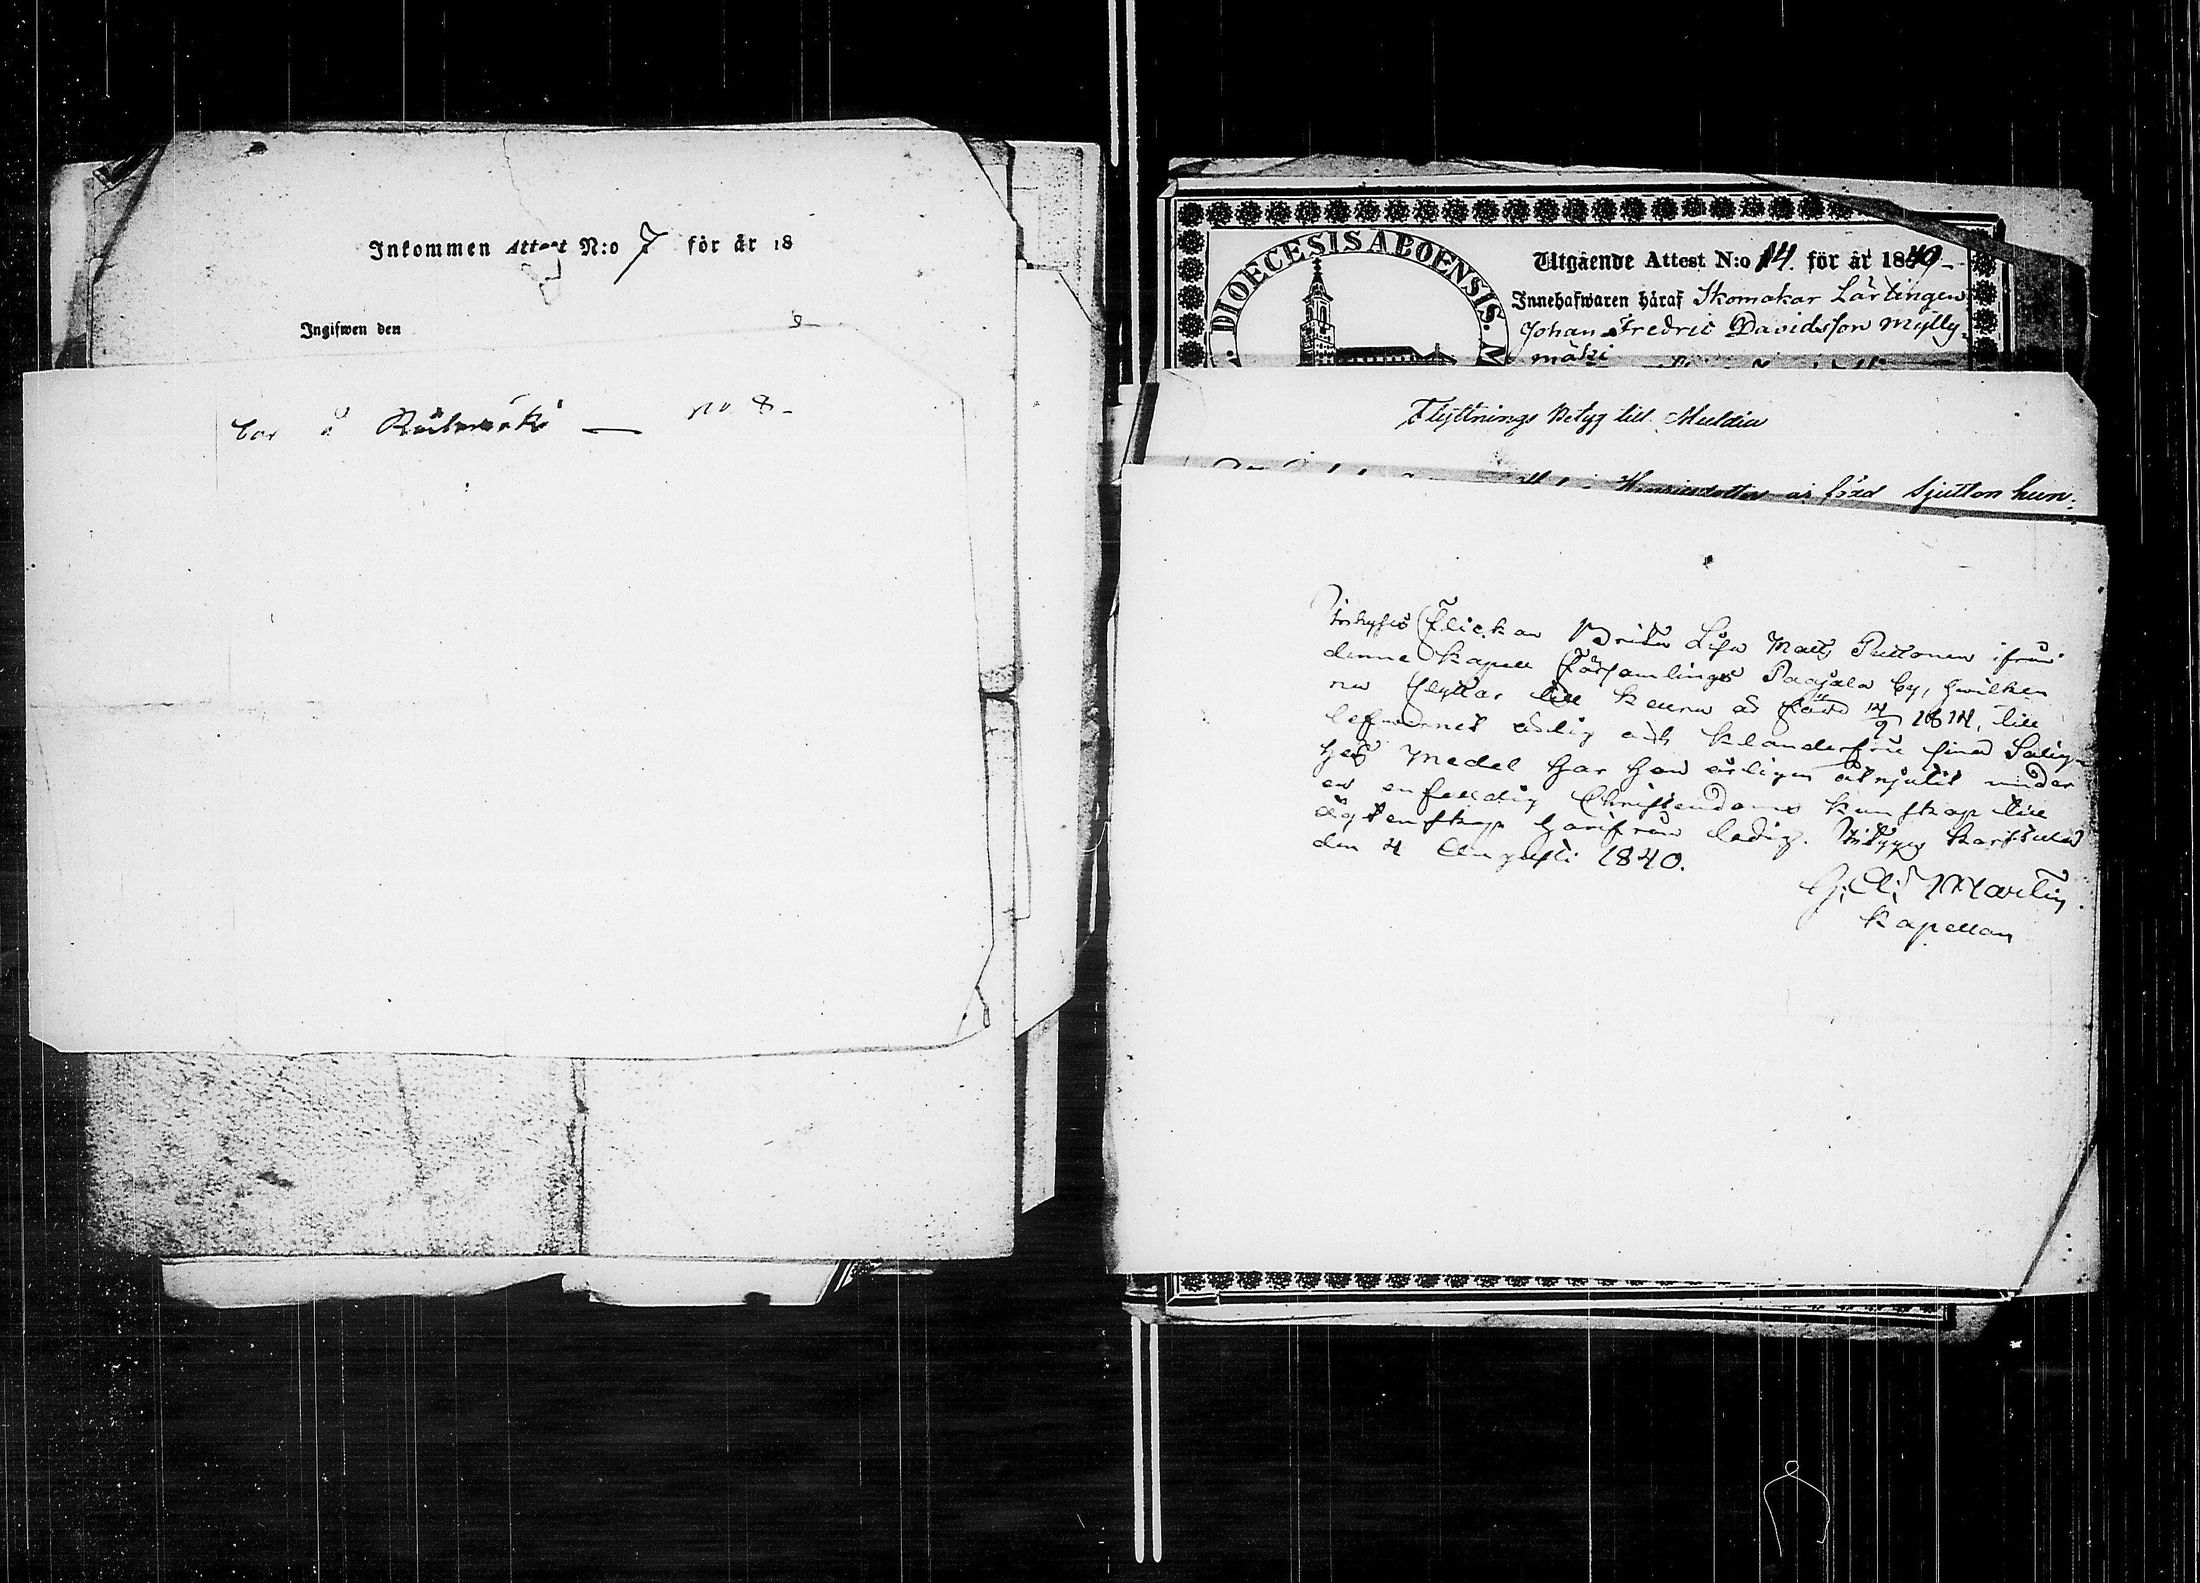 Inkommen Attest N:o 7 för år 18
Ingifwen den
å — No 8 -
DIOECESIS ABOENSIS.
Utgående Attest N:o 14. för år 1840 -
Innehafwaren häraf Skomakar Lärlingen
Johan Fredric Davidsson Mylly-
mäki
Flyttnings Betyg till Muldia
Henricsdotter är född Sjutton hun-
Flickan Brita Lisa Matts Puttonen ifrån
denna Kapell Församlings Paajala by, hwilken
nu flyttar till Keuru är född 14/9 1814, till
lefwernet ärlig och klanderfri sina Salig-
hets Medel har hon årligen åtnjutit under
en enfaldig Christendoms kunskap till
ägtenskap härifrån ledig. Karstula
den 4 Augusti 1840.
Martin
Kapellan